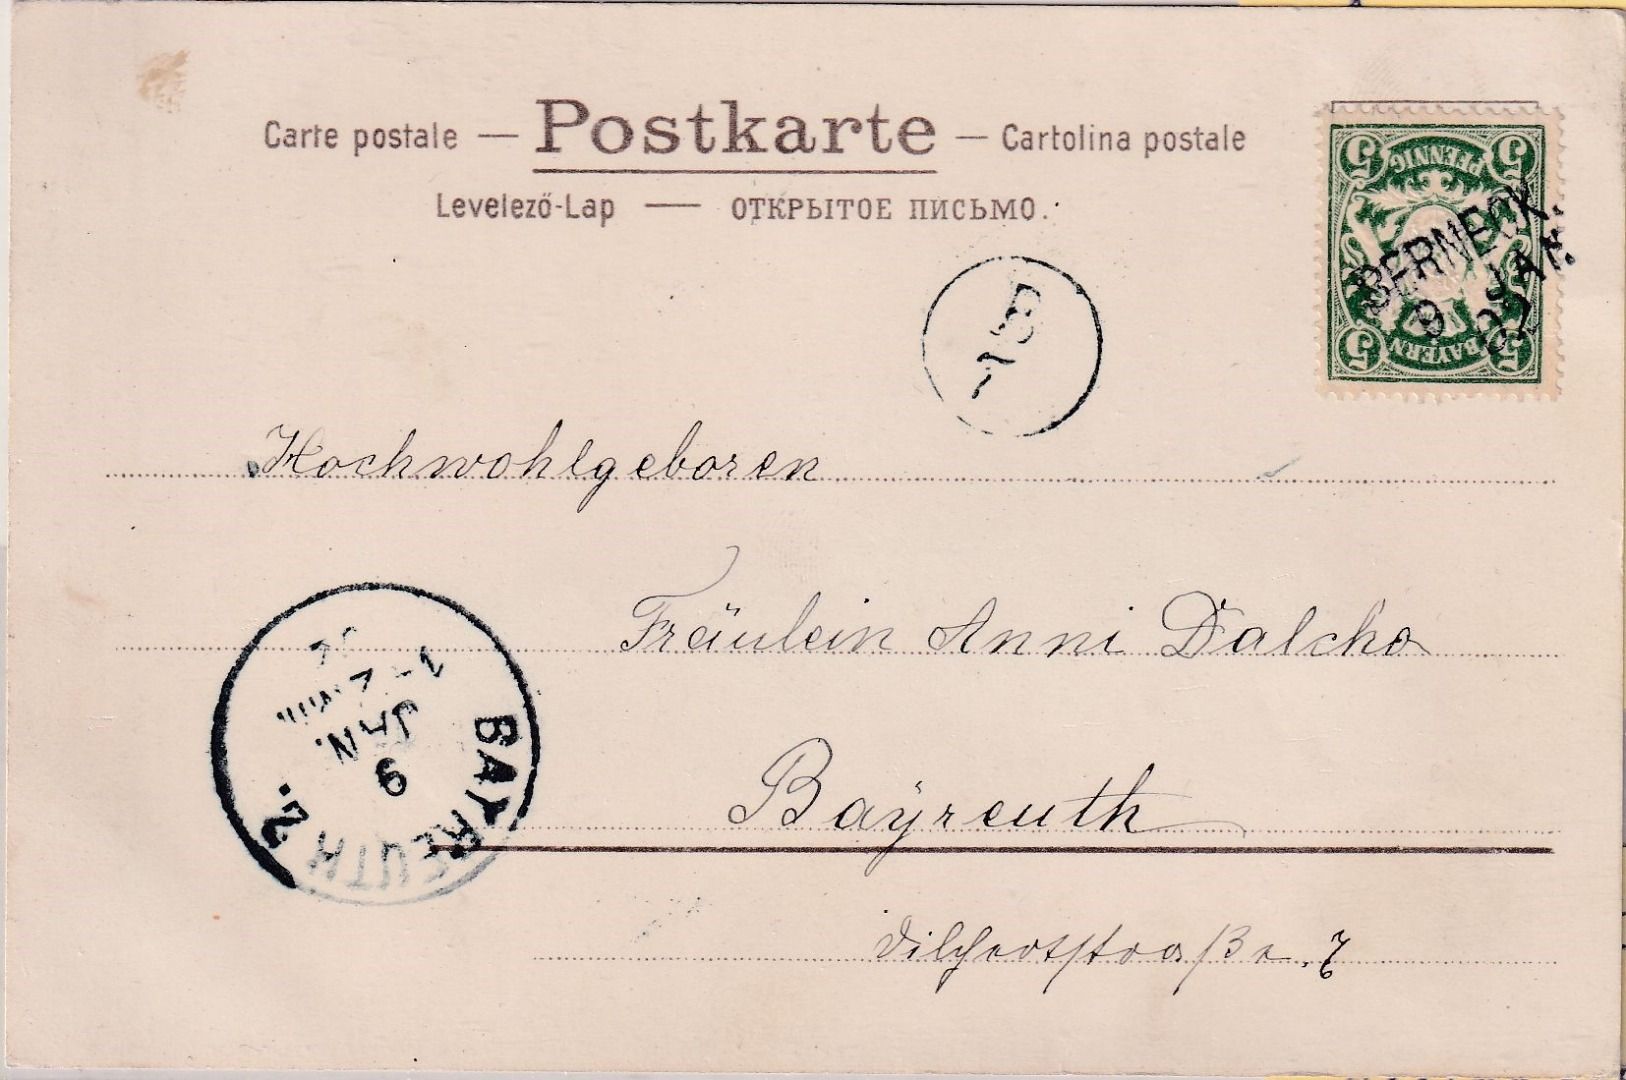 Carte postale — Postkarte — Cartolina postale
Levelező-Lap — ОТКРЫТОЕ ПИСЬМО.
5 PFENNIG 5
5 BAYERN 5
BERNECK.
9 JAN.
B
7
Hochwohlgeboren
Fräulein Anni
Bayreuth
7
BAYREUTH 2.
9
JAN.